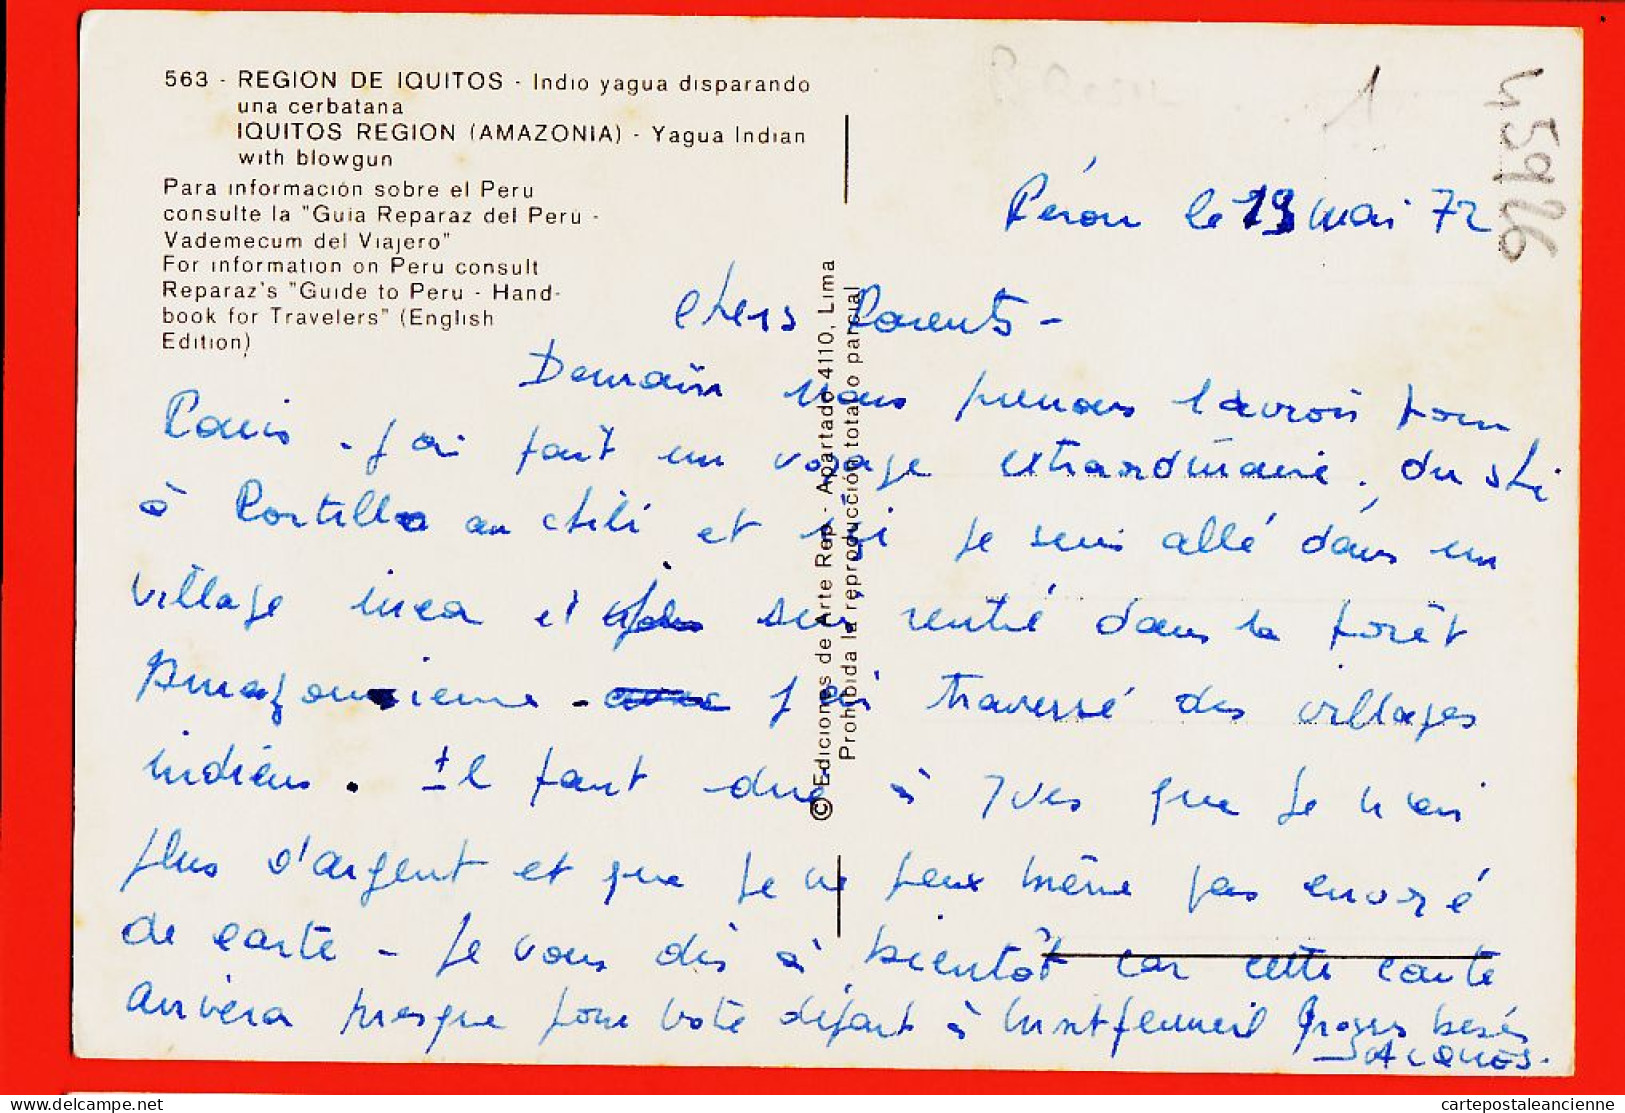 563 - REGION DE IQUITOS - Indio yagua disparando
una cerbatana
IQUITOS REGION (AMAZONIA) - Yagua Indian
with blowgun
Para información sobre el Peru
consulte la "Guia Reparaz del Perú -
Vademecum del Viajero"
For information on Peru consult
Reparaz's "Guide to Peru - Hand-
book for Travelers" (English
Edition)
© Ediciones de Arte Rep - Apartado 4110, Lima
Prohibida la reproducción total o parcial
1
45926
Pérou le 19 mai 72
Chers Parents -
Demain nous prenons l'avion pour
Paris - J'ai fait un voyage extraordinaire, du ski
à Portillo au Chili et ici je suis allé dans un
village inca et suis rentré dans la forêt
Amazonienne - J'ai traversé des villages
indiens. Il faut dire à Yves que je n'ai
plus d'argent et que je ne peux même pas envoyé
de carte - Je vous dis à bientôt car cette carte
arrivera presque pour votre départ à Montfermeil Grosses bises
JACQUES.
cartepostaleancienne